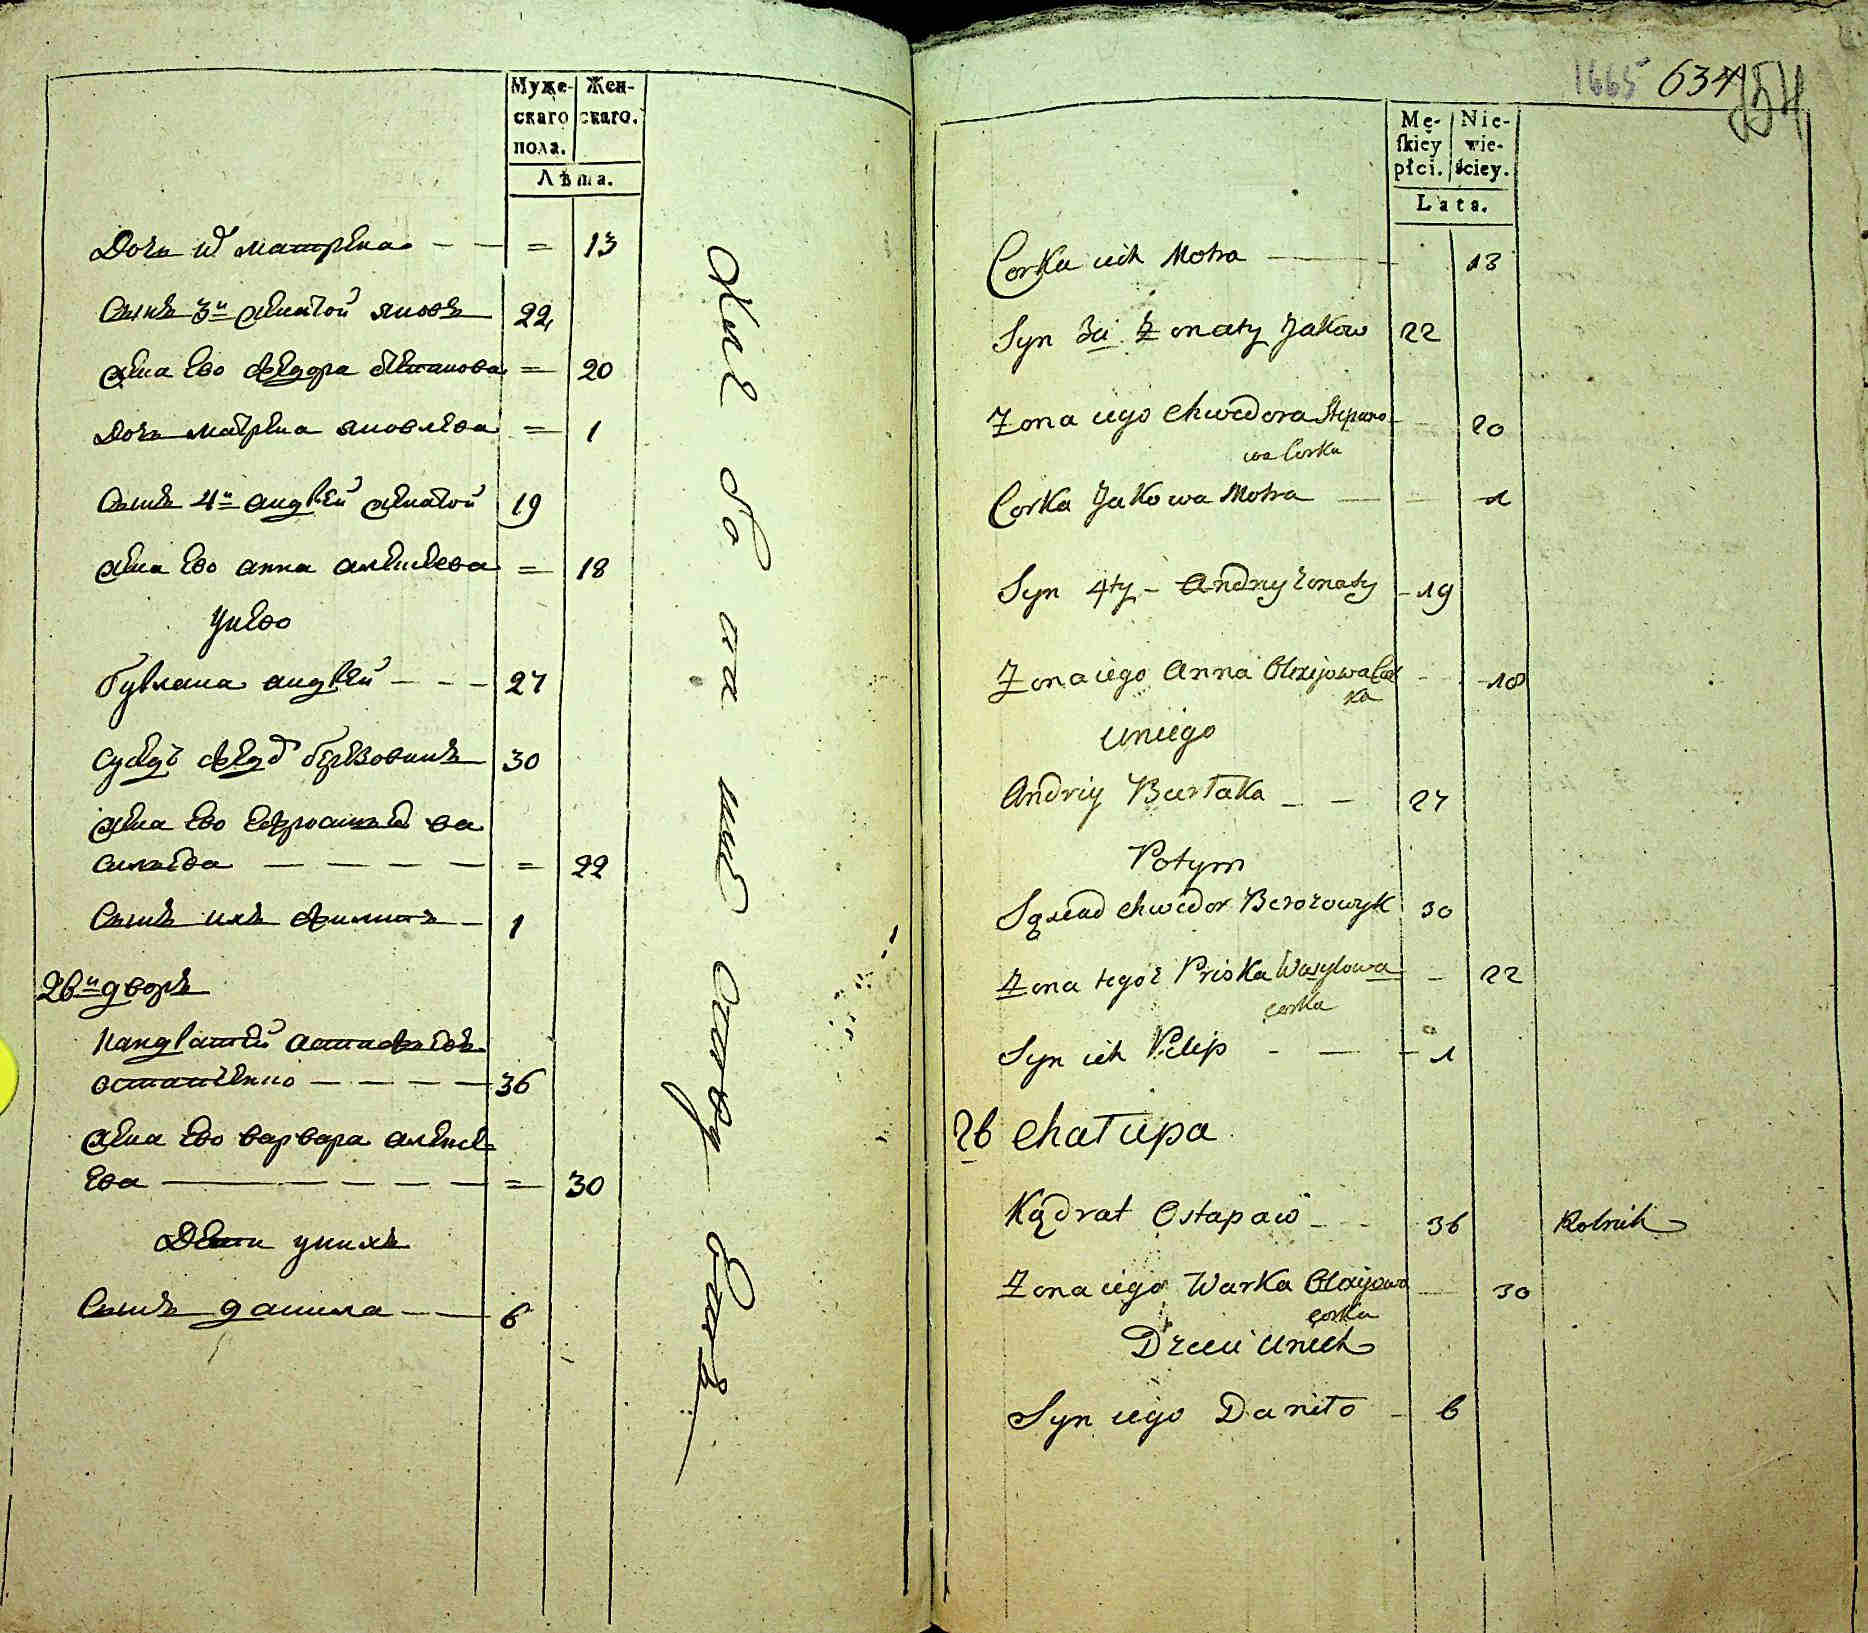 Муже- Жен-
скаго скаго.
пола.
Лѣта.
Дочь их матрена — — = 13
Сынъ 3й женатой яковъ 22
жена ево федора степанова = 20
Дочь матрена яковлева = 1
Сынъ 4й андрей женатой 19
жена ево анна алексеева = 18
У нево
бурлака андрей — — — 27
Сусед федор березовикъ 30
жена ево ефросинья ва
сильева — — — — — = 22
Сынъ ихъ филипъ — 1
26й дворъ
Кандратей астафьевъ
остапенко — — — — 36
жена ево варвара алексе
ева — — — — — = 30
Дети у нихъ
Сынъ данила — — 6
1665 634 154
Mę- Nie-
ſkiey wie-
płci. ściey.
Lata.
Corka ich Motra — 13
Syn 3ci Żonaty Jakow 22
Żona iego Chwedora Stepano- 20
wa Corka
Corka Jakowa Motra — 1
Syn 4ty – Andriy żonaty – 19
Żona iego Anna Olexijowa Cor 18
ka
u niego
Andriy Burłaka – – 27
Potym
Sąsiad Chwedor Berozowyk 30
Żona tegoż Priska Wasylowa – 22
corka
Syn ich Pilip – — – 1
26 chałupa
Kądrat Ostapow – – 36 Rolnik
Żona iego Warka Olexijowa 30
corka
Dzieci u nich
Syn iego Daniło – 6